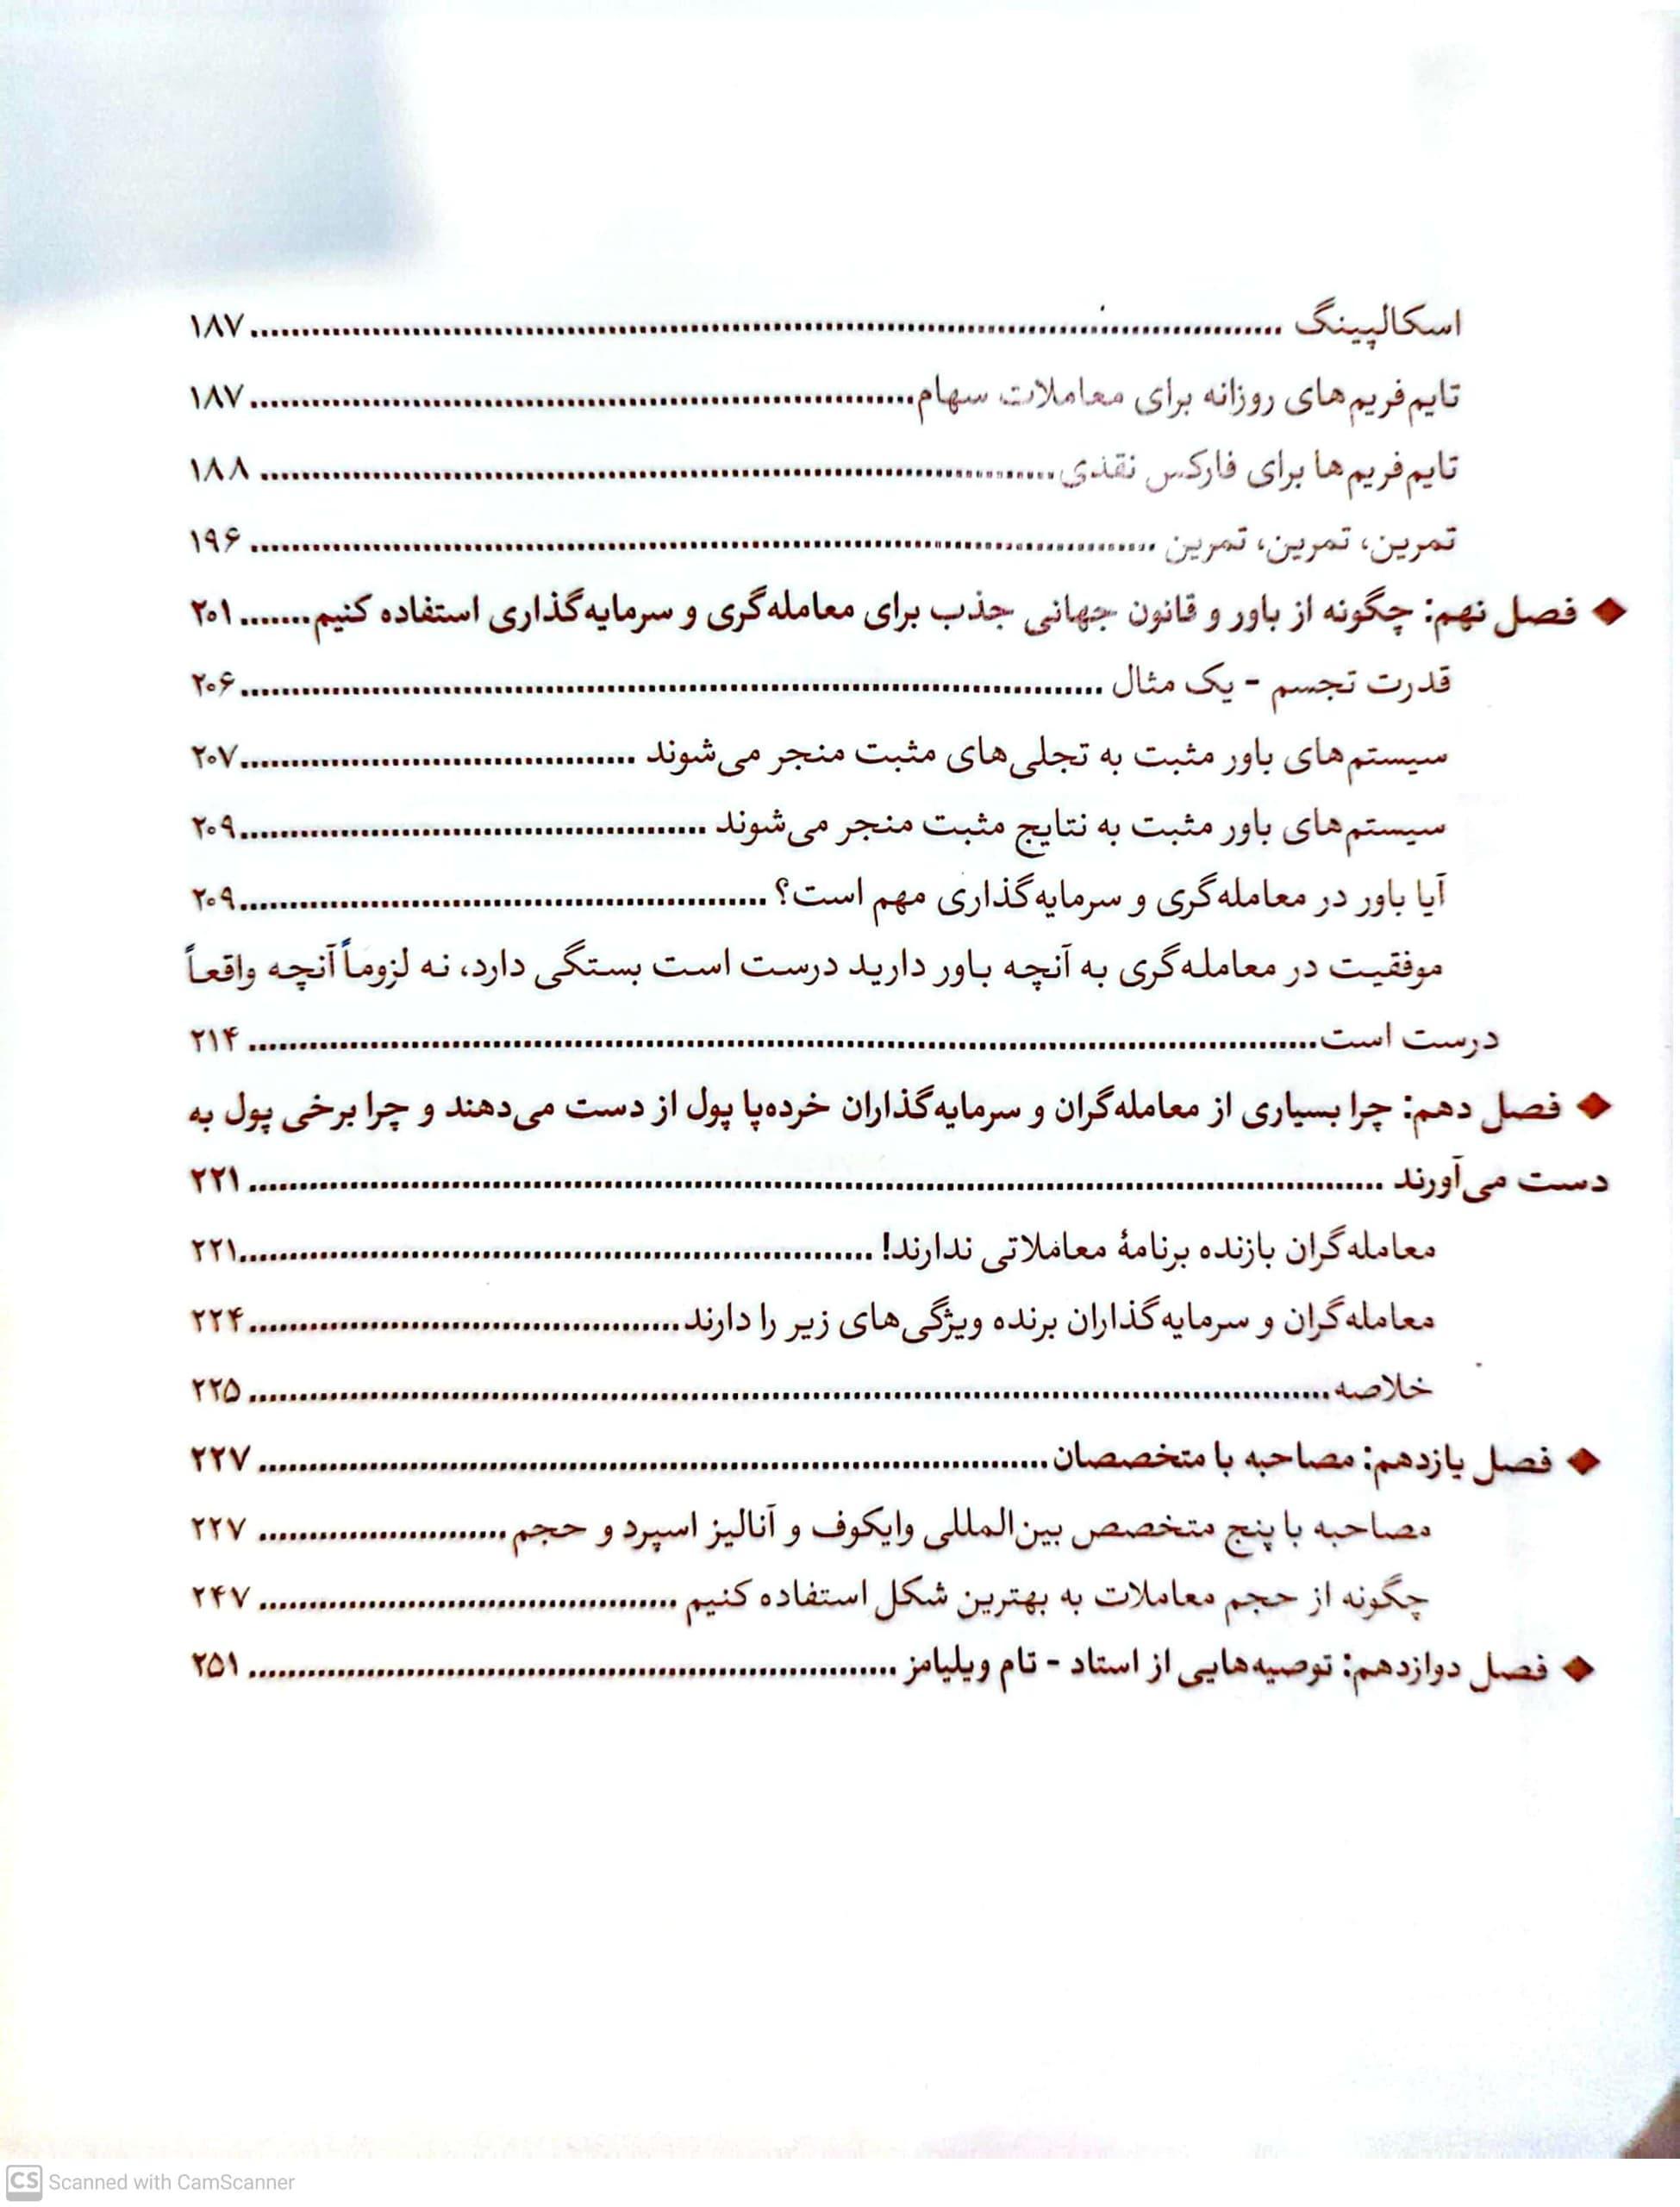 اسکالپینگ ........ ۱۸۷
تایم‌فریم‌های روزانه برای معاملات سهام ........ ۱۸۷
تایم‌فریم‌ها برای فارکس نقدی ........ ۱۸۸
تمرین، تمرین، تمرین ........ ۱۹۶
◆ فصل نهم: چگونه از باور و قانون جهانی جذب برای معامله‌گری و سرمایه‌گذاری استفاده کنیم ....... ۲۰۱
قدرت تجسم - یک مثال ........ ۲۰۶
سیستم‌های باور مثبت به تجلی‌های مثبت منجر می‌شوند ........ ۲۰۷
سیستم‌های باور مثبت به نتایج مثبت منجر می‌شوند ........ ۲۰۹
آیا باور در معامله‌گری و سرمایه‌گذاری مهم است؟ ........ ۲۰۹
موفقیت در معامله‌گری به آنچه باور دارید درست است بستگی دارد، نه لزوماً آنچه واقعاً
درست است ........ ۲۱۴
◆ فصل دهم: چرا بسیاری از معامله‌گران و سرمایه‌گذاران خرده‌پا پول از دست می‌دهند و چرا برخی پول به
دست می‌آورند ........ ۲۲۱
معامله‌گران بازنده برنامهٔ معاملاتی ندارند! ........ ۲۲۱
معامله‌گران و سرمایه‌گذاران برنده ویژگی‌های زیر را دارند ........ ۲۲۴
خلاصه ........ ۲۲۵
◆ فصل یازدهم: مصاحبه با متخصصان ........ ۲۲۷
مصاحبه با پنج متخصص بین‌المللی وایکوف و آنالیز اسپرد و حجم ........ ۲۲۷
چگونه از حجم معاملات به بهترین شکل استفاده کنیم ........ ۲۴۷
◆ فصل دوازدهم: توصیه‌هایی از استاد - تام ویلیامز ........ ۲۵۱
CS Scanned with CamScanner